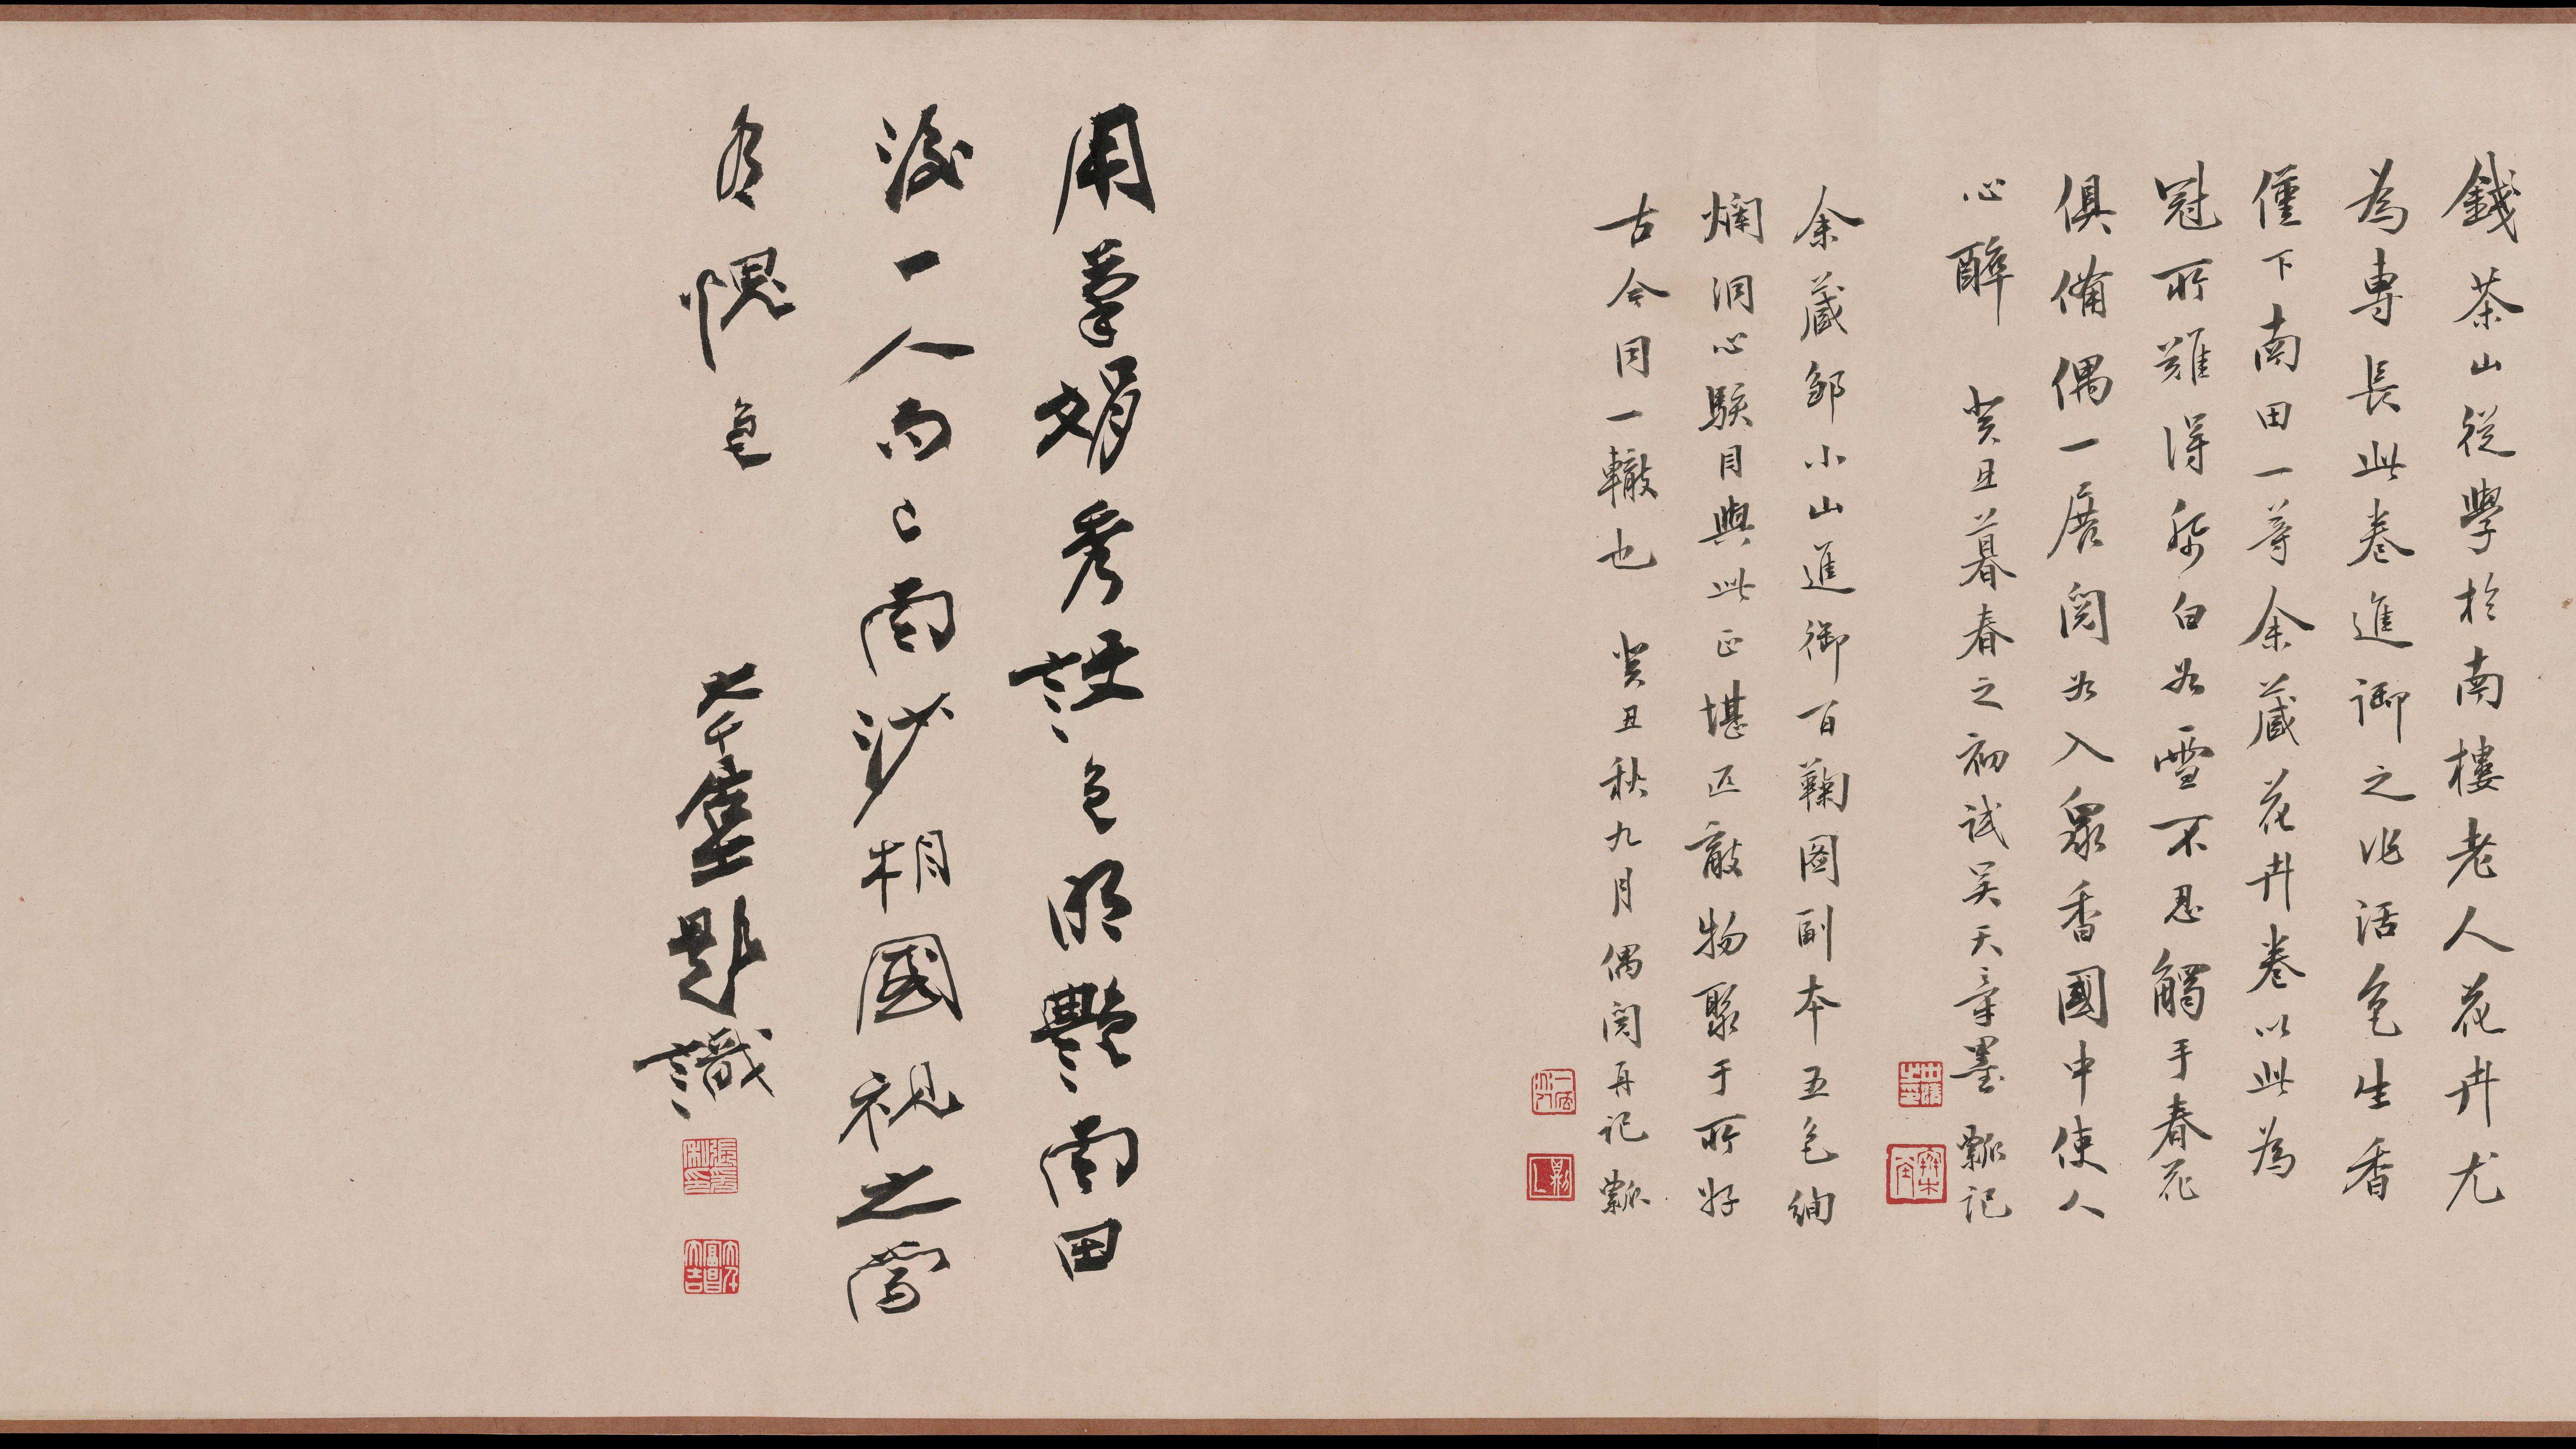 錢茶山從學於南樓老人花卉尤
為專長此卷進御之作活色生香
僅下南田一等余藏花卉卷以此為
冠所難得紙白如雪不忍觸手春花
俱備偶一展閱如入眾香國中使人
心醉 癸丑暮春之初試吴天章墨 瓢記
余藏鄒小山進御百鞠圖副本五色絢
爛洞心駭目與此正堪匹敵物聚于所好
古今同一轍也 癸丑秋九月偶閱再記 瓢
用筆娟秀設色明艷南田
後一人而已南沙相國視之當
有愧色 大千居士題識
張爰私印
大千富昌大吉